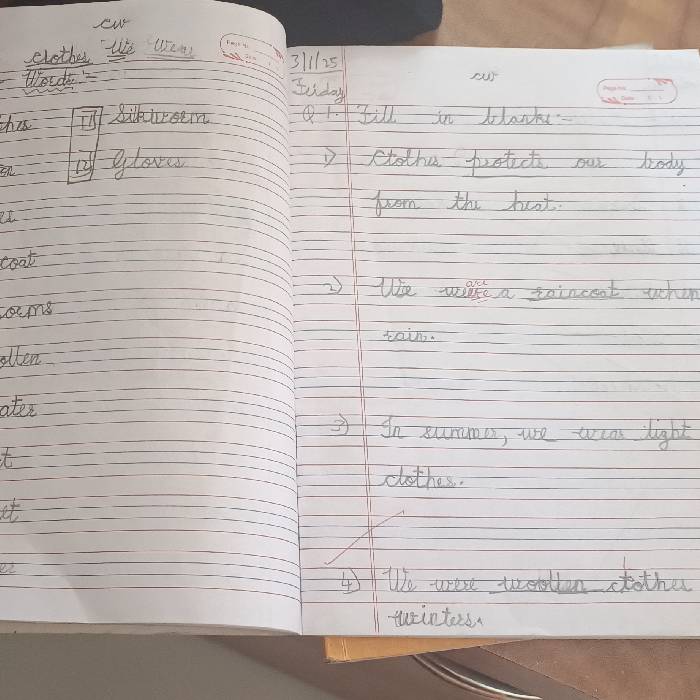 cw
Clothes We Wear
Words :-
11 Silkworm
12 Gloves
coat
orms
ollen
ater
t
et
3/1/25
cw
Friday
Q 1. Fill in blanks :-
1) Clothes protects our body
from the heat.
2) We weare a raincoat when
are
rain.
3) In summer, we wear light
clothes.
4) We were woollen clothes
winters.